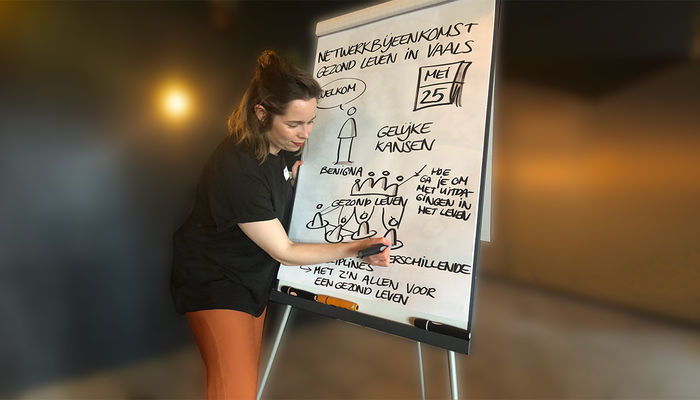 NETWERKBIJEENKOMST
GEZOND LEVEN IN VAALS
MEI
25
WELKOM
GELIJKE
KANSEN
BENIGNA
HOE
GA JE OM
MET UITDA-
GINGEN IN
HET LEVEN
GEZOND LEVEN
VERSCHILLENDE
MET Z'N ALLEN VOOR
EEN GEZOND LEVEN